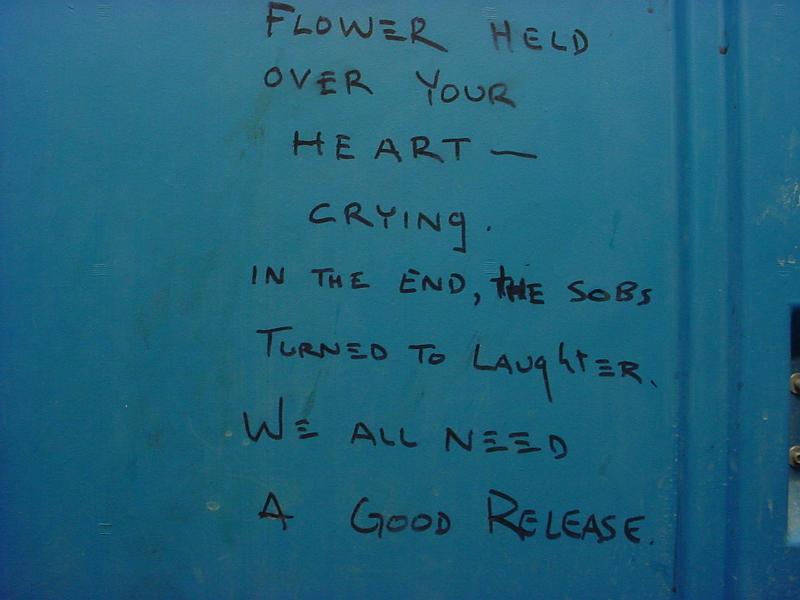 FLOWER HELD
OVER YOUR
HEART —
CRYING.
IN THE END, THE SOBS
TURNED TO LAUGHTER.
WE ALL NEED
A GOOD RELEASE.